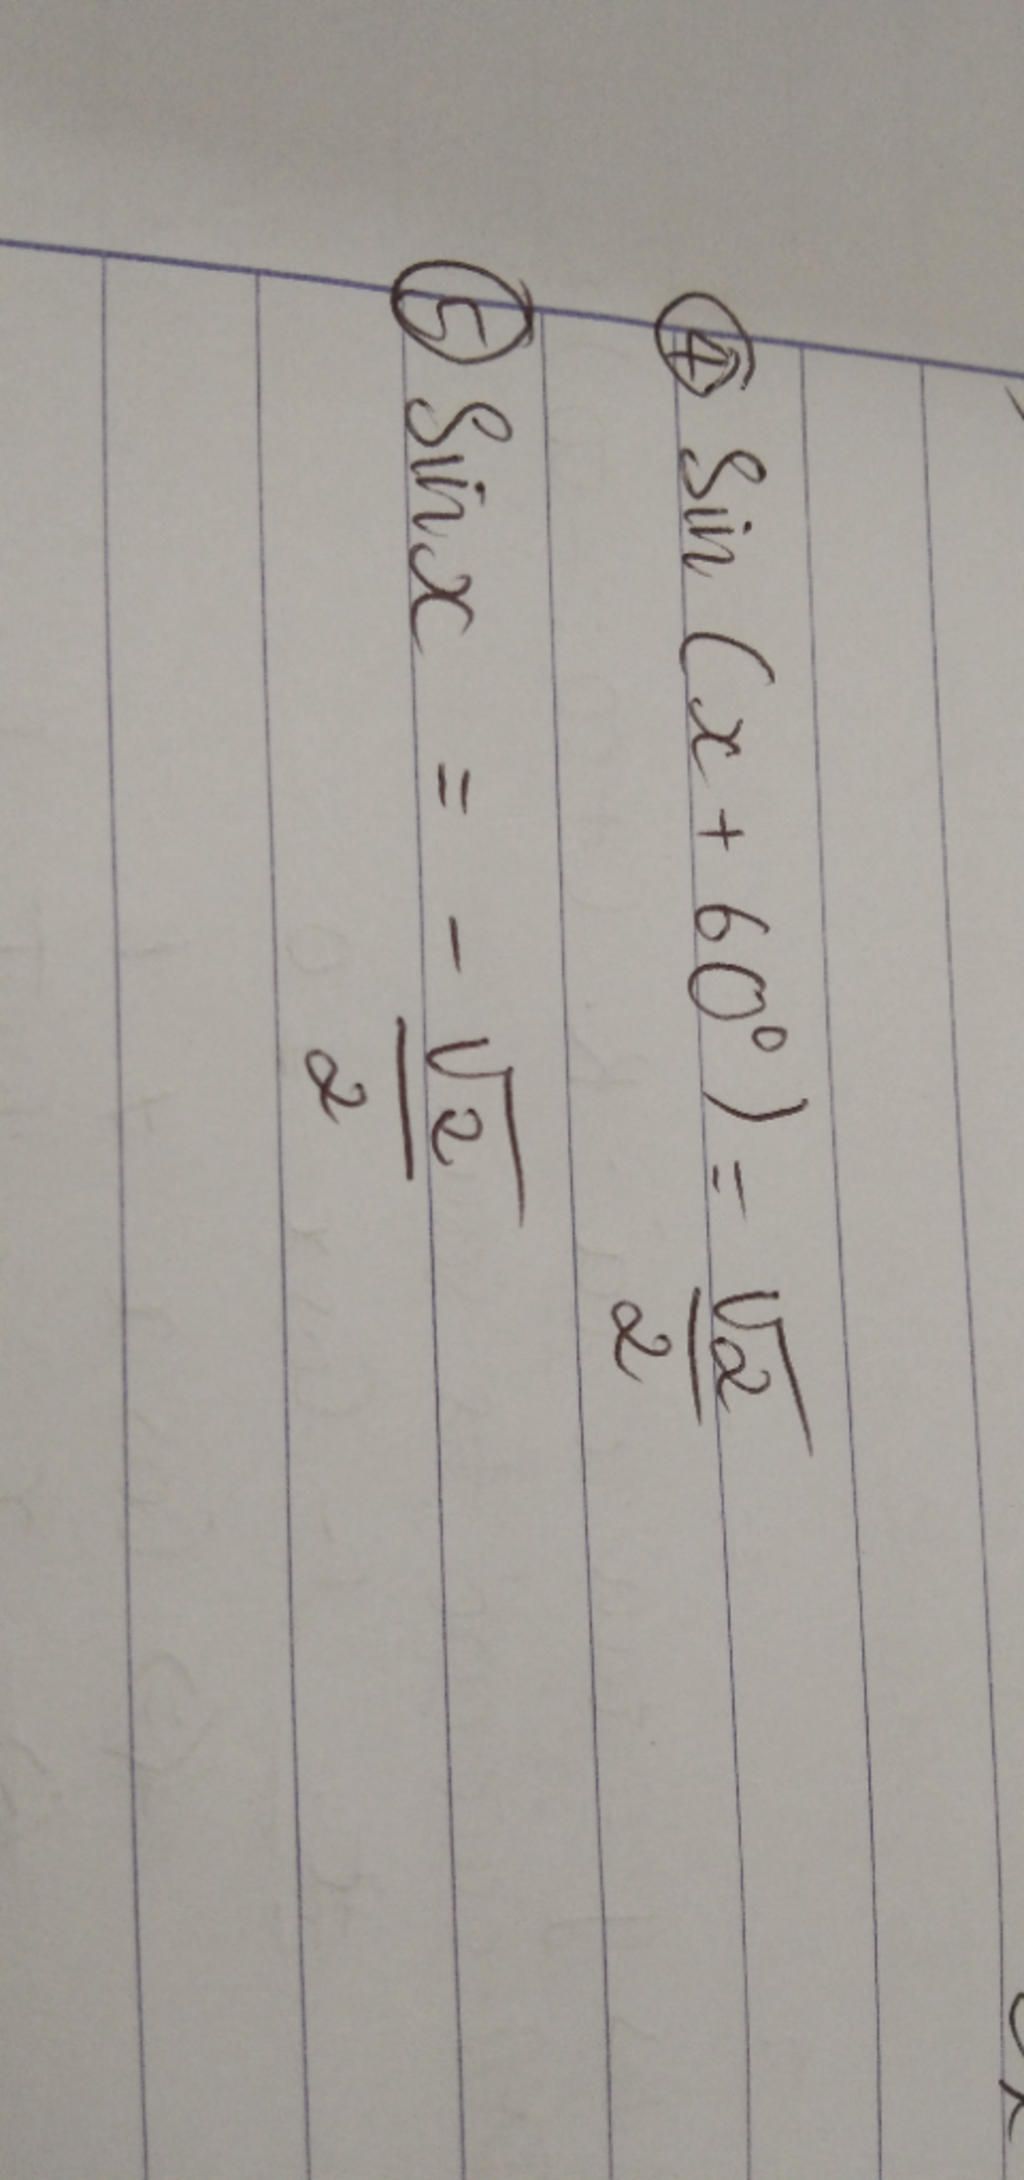 ④ Sin (x + 60°) = √2/2
⑤ Sin x = - √2/2